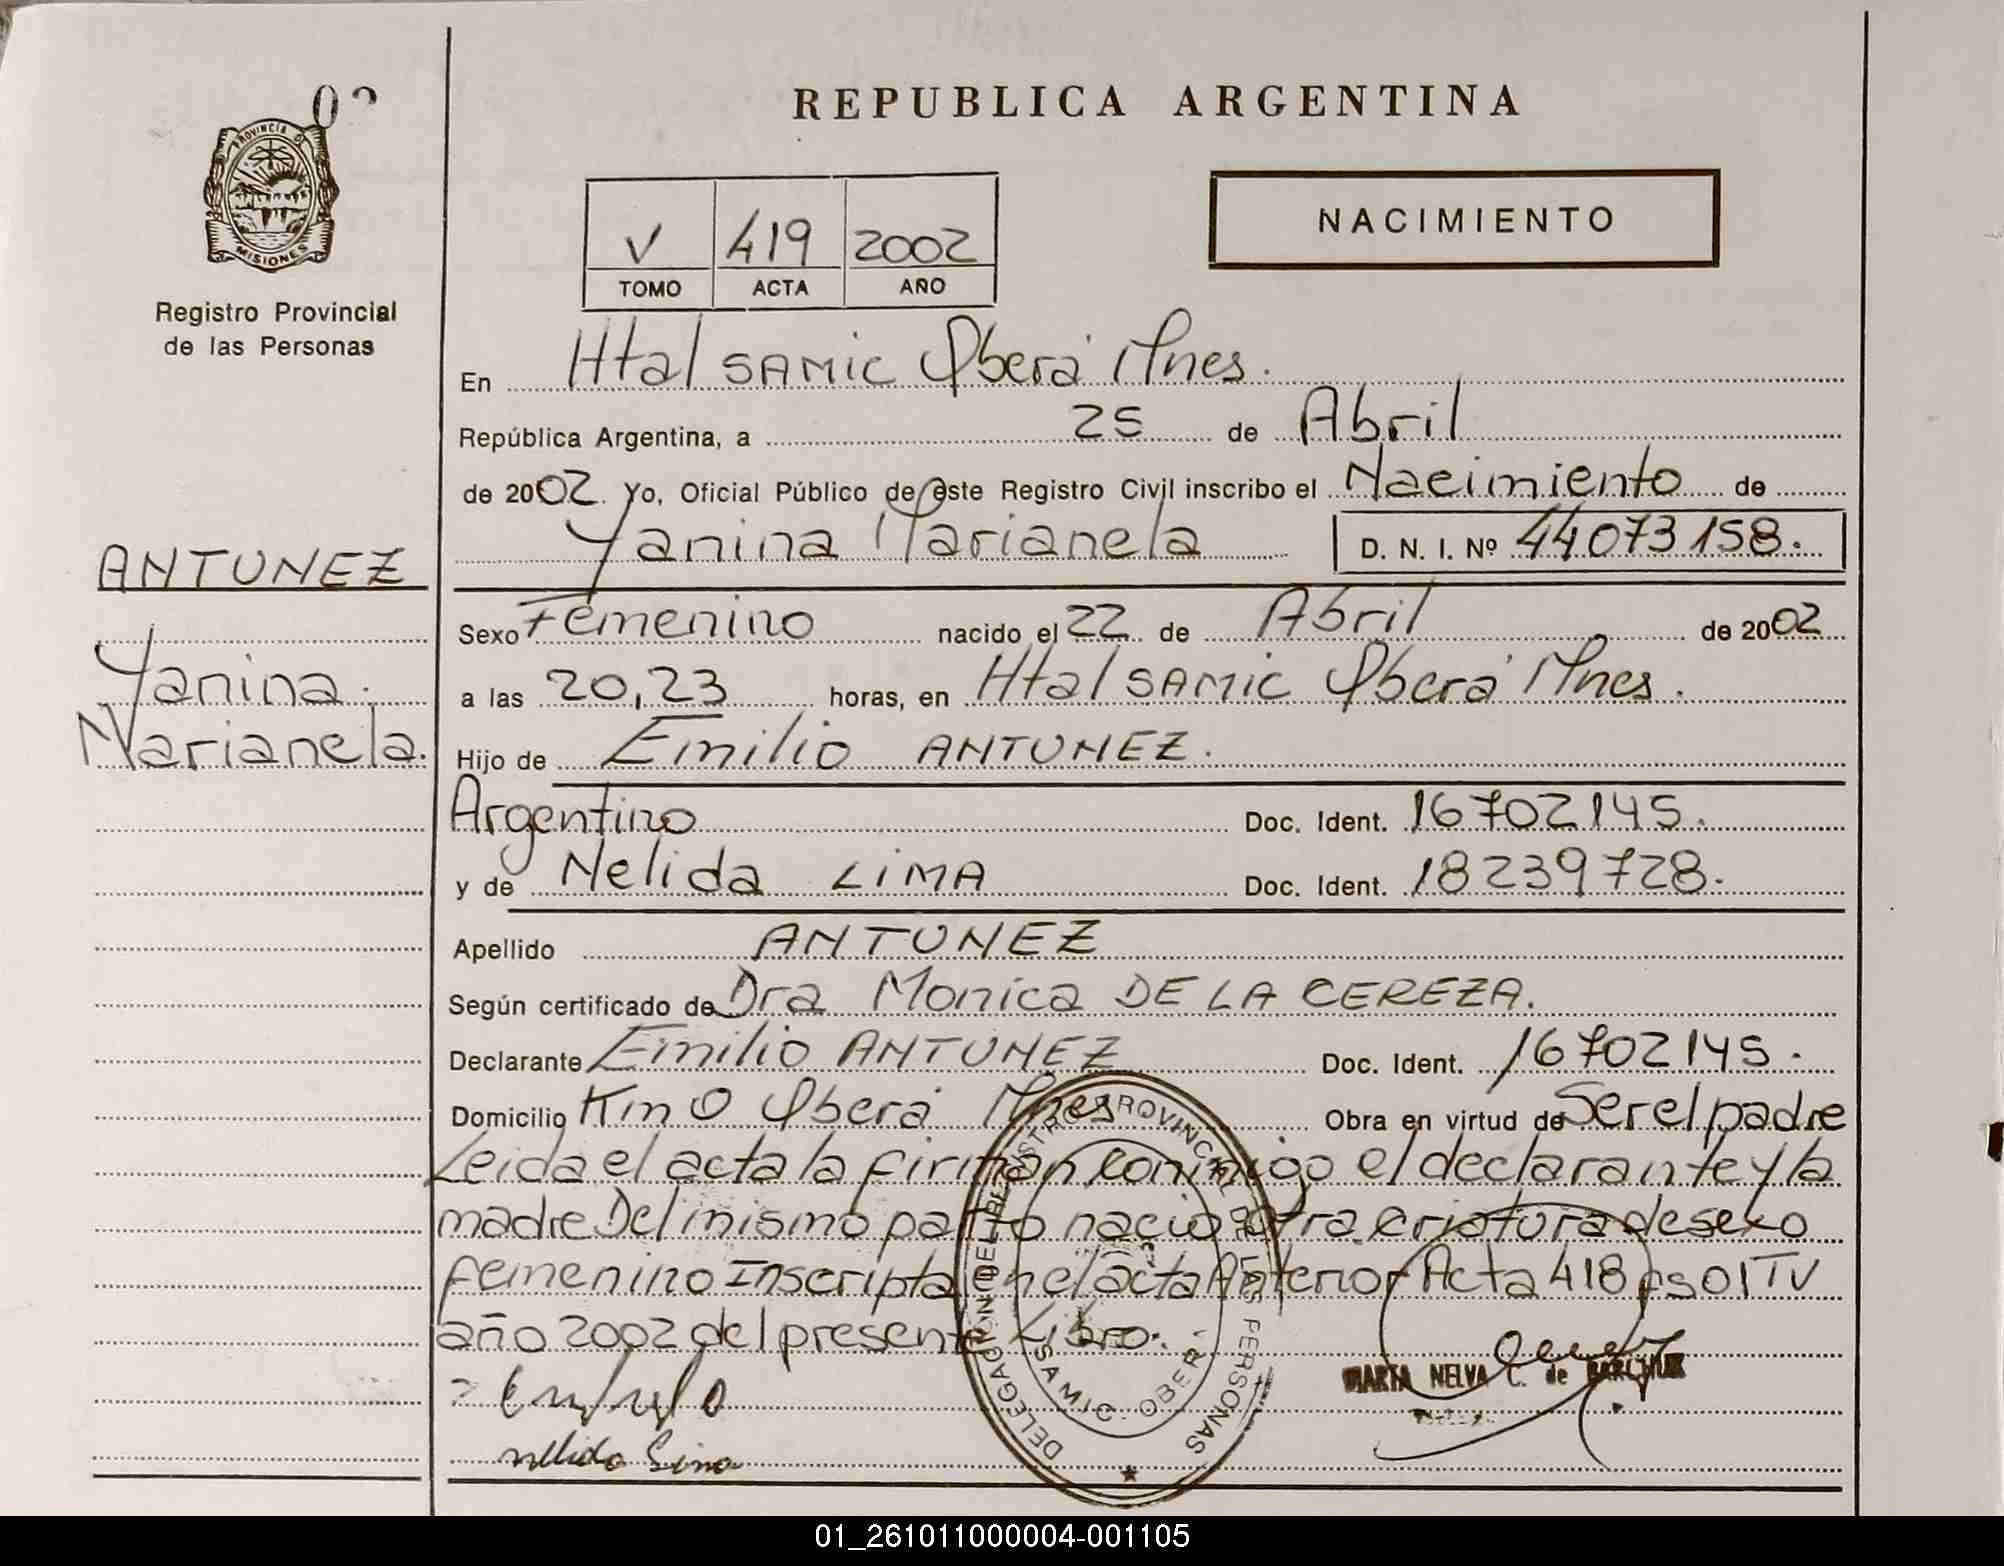 02
PROVINCIA D
MISIONES
Registro Provincial
de las Personas
REPUBLICA ARGENTINA
V 419 2002
TOMO ACTA AÑO
NACIMIENTO
En Htal SAMIC Oberá Mnes.
República Argentina, a 25 de Abril
de 2002. Yo, Oficial Público de este Registro Civil inscribo el Nacimiento de
Yanina Marianela D. N. I. Nº 44073158.
ANTUNEZ
Yanina
Marianela.
Sexo Femenino nacido el 22 de Abril de 2002
a las 20,23 horas, en Htal SAMIC Oberá Mnes.
Hijo de Emilio ANTUNEZ.
Argentino Doc. Ident. 16702145.
y de Nelida LIMA Doc. Ident. 18239728.
Apellido ANTUNEZ
Según certificado de Dra Monica DE LA CEREZA.
Declarante Emilio ANTUNEZ Doc. Ident. 16702145.
Domicilio Km 0 Oberá Mnes Obra en virtud de Ser el padre
Leida el acta la firman conmigo el declarante y la
madre Del mismo parto nacio otra criatura de sexo
femenino Inscripta en el acta Anterior Acta 418 fs 01 TV
año 2002 del presente Libro.
DELEGACION DEL REGISTRO PROVINCIAL DE LAS PERSONAS
SAMIC OBERA
MARTA NELVA C. de
01_261011000004-001105